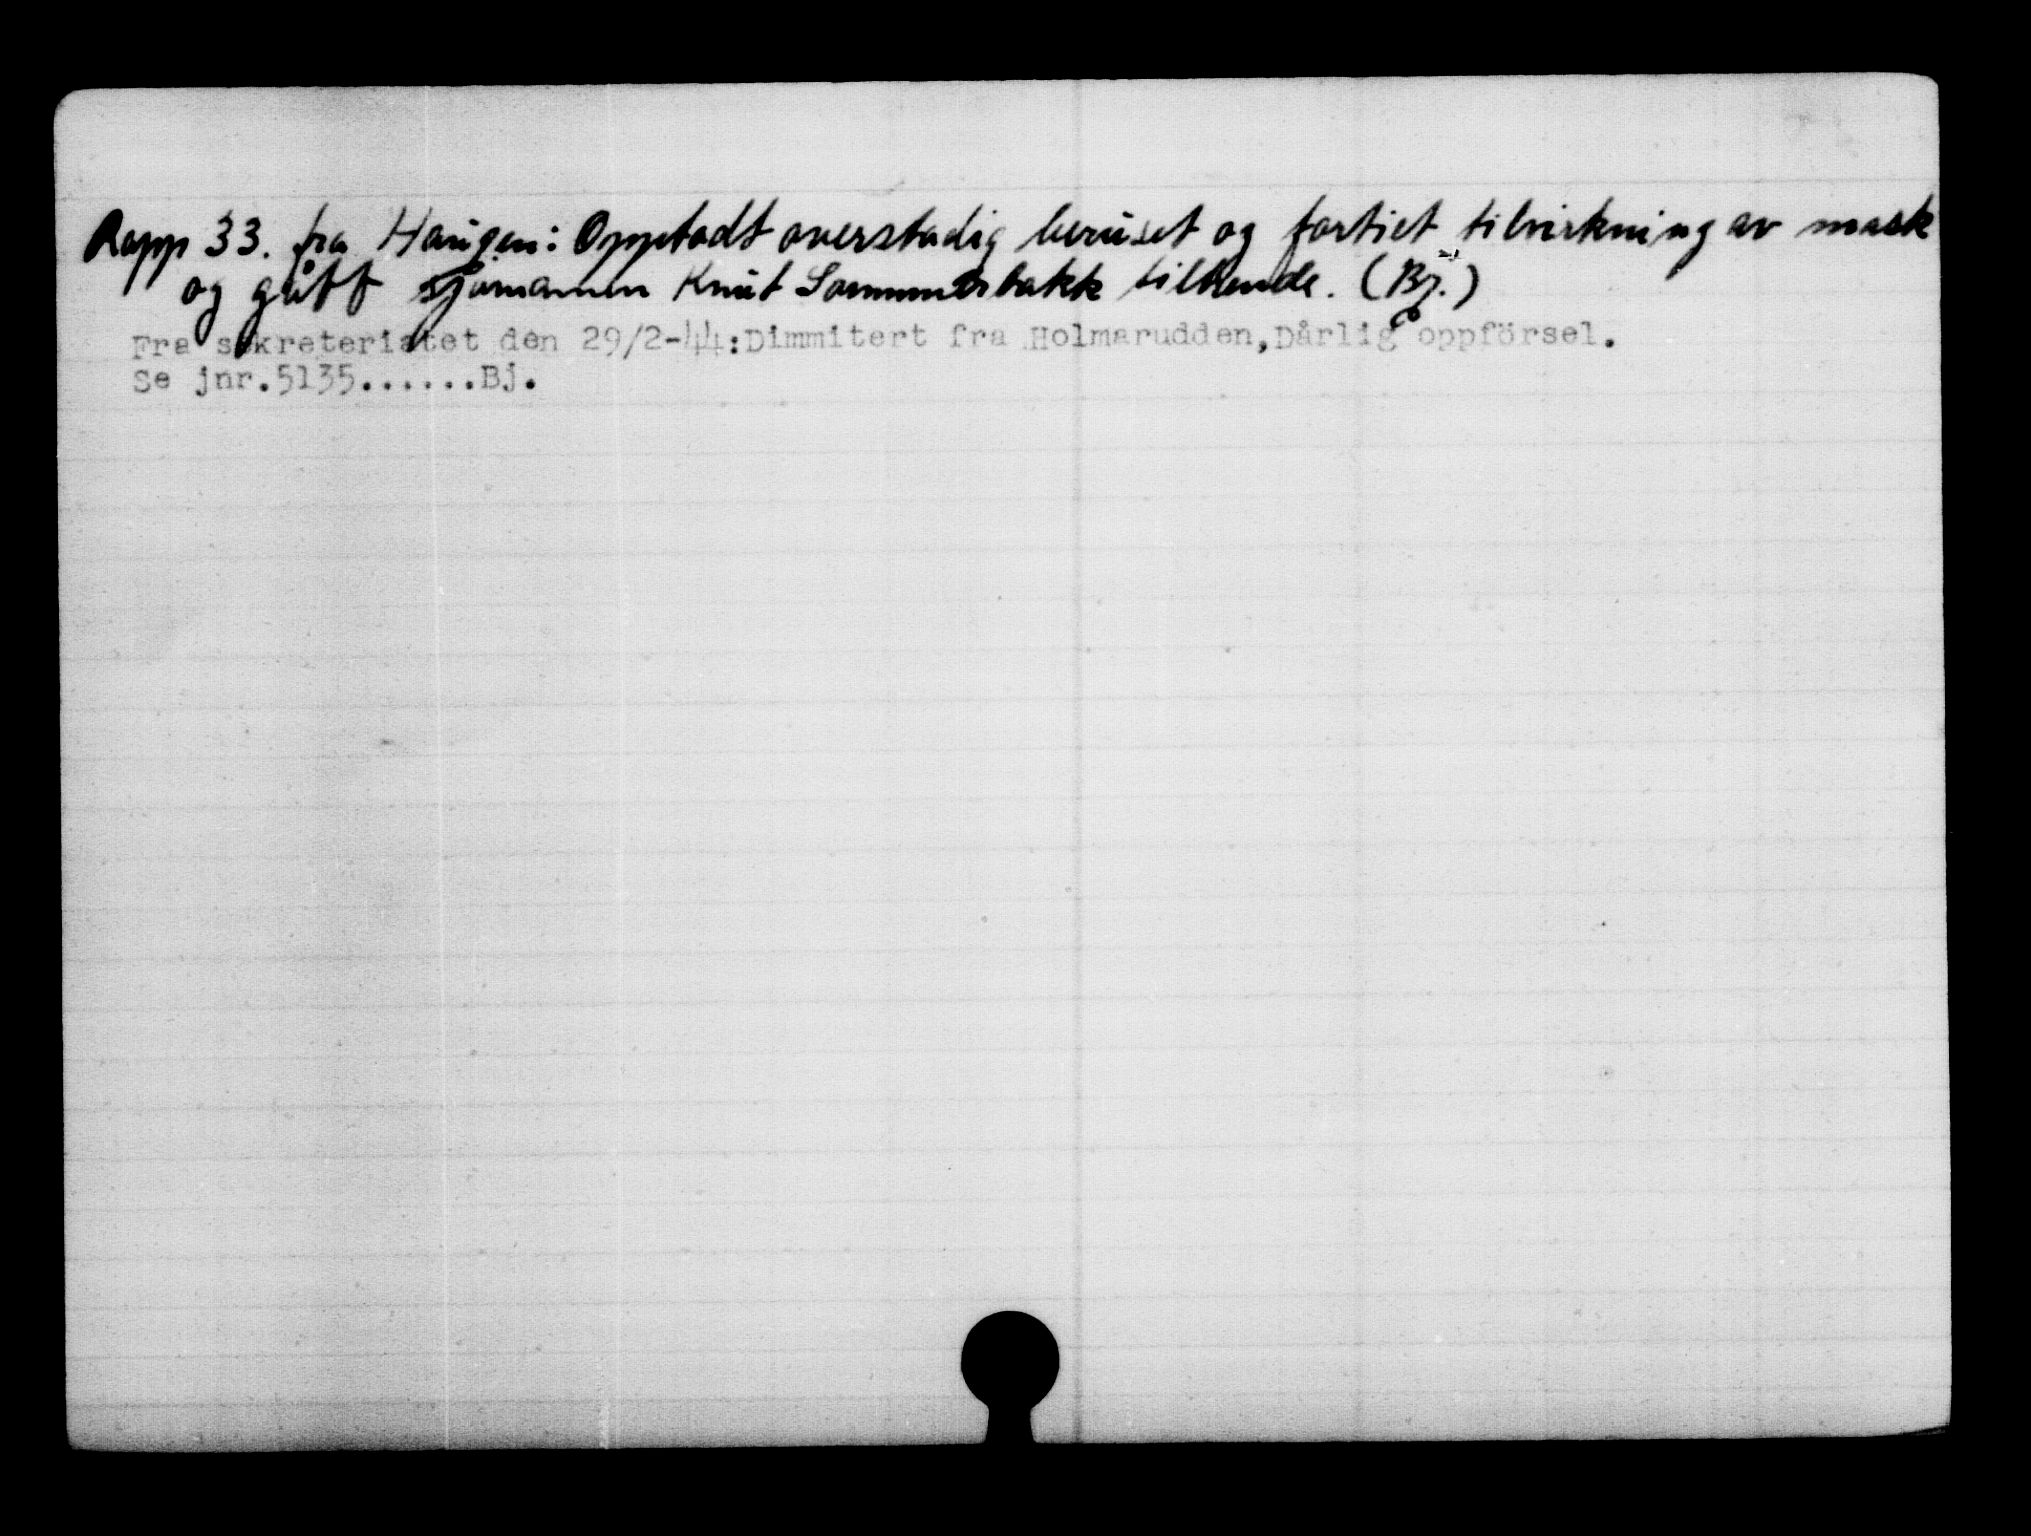 Rapp 33. fra Haugen: Opptådt overstadig beruset og fortiet tilvirkning av mask
og gått sjømannen Knut Sommerbakk tilhende. (Bj.)
Fra sekreteriatet den 29/2-44:Dimmitert fra Holmarudden,Dårlig oppförsel.
Se jnr.5135......Bj.